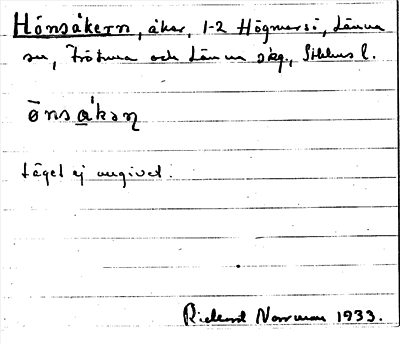 Hönsåkern, åker, 1-2 Högmarsö, Länna
sn, Frötuna och Länna skg., Sthlms l.
ṓnsa̲kəɳ
Läget ej angivet.
Rickard Norrman 1933.